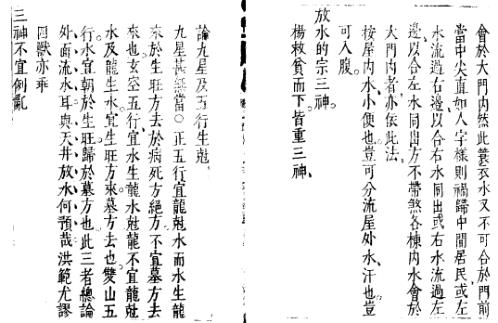 會於大門内然此簑衣水又不可合於門前
當中尖直如人字樣則禍歸中間居民或左
水流過右邊以合右水同出或右水流過左
邊以合左水同出方不帶煞各棟内水會於
大門内者亦依此法
按屋内水小便也豈可分流屋外水汗也豈
可入腹
放水的宗三神
楊救貧而下皆重三神
論九星及五行生尅
九星甚無當〇正五行宜龍尅水而水生龍
來於生旺方去於病死方絕方不宜墓方去
來也玄空五行宜水生龍水尅龍不宜龍尅
水及龍生水宜生旺方來墓方去也雙山五
行水宜朝於生旺歸於墓方也此三者總論
外面流水耳與天井放水何預哉洪範尤謬
回獸亦乖
三神不宜倒亂